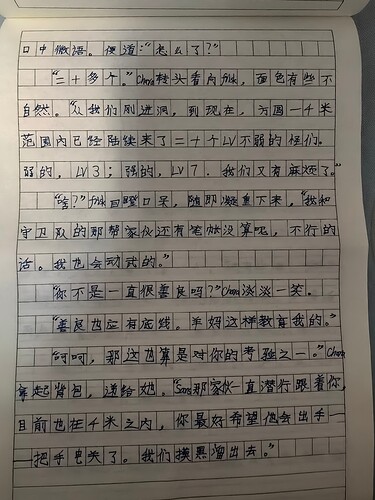 口中微语。便道:"怎么了?"
"二十多个。"Chara转头看向frisk,面色有些不
自然。"从我们刚进洞,到现在,方圆一千米
范围内已经陆续来了二十个LV不弱的怪们。
弱的,LV3;强的,LV7。我们又有麻烦了。"
"啥?"frisk目瞪口呆,随即凝重下来,"我和
守卫队的那帮家伙还有笔帐没算呢,不行的
话。我也会动武的。"
"你不是一直很善良吗?"Chara淡淡一笑。
"善良也应有底线。羊妈这样教育我的。"
"呵呵,那这也算是对你的考验之一。"Chara
拿起背包,递给她。"Sans那家伙一直潜行跟着你,
目前也在千米之内,你最好希望他会出手——
——把手电关了。我们摸黑溜出去。"